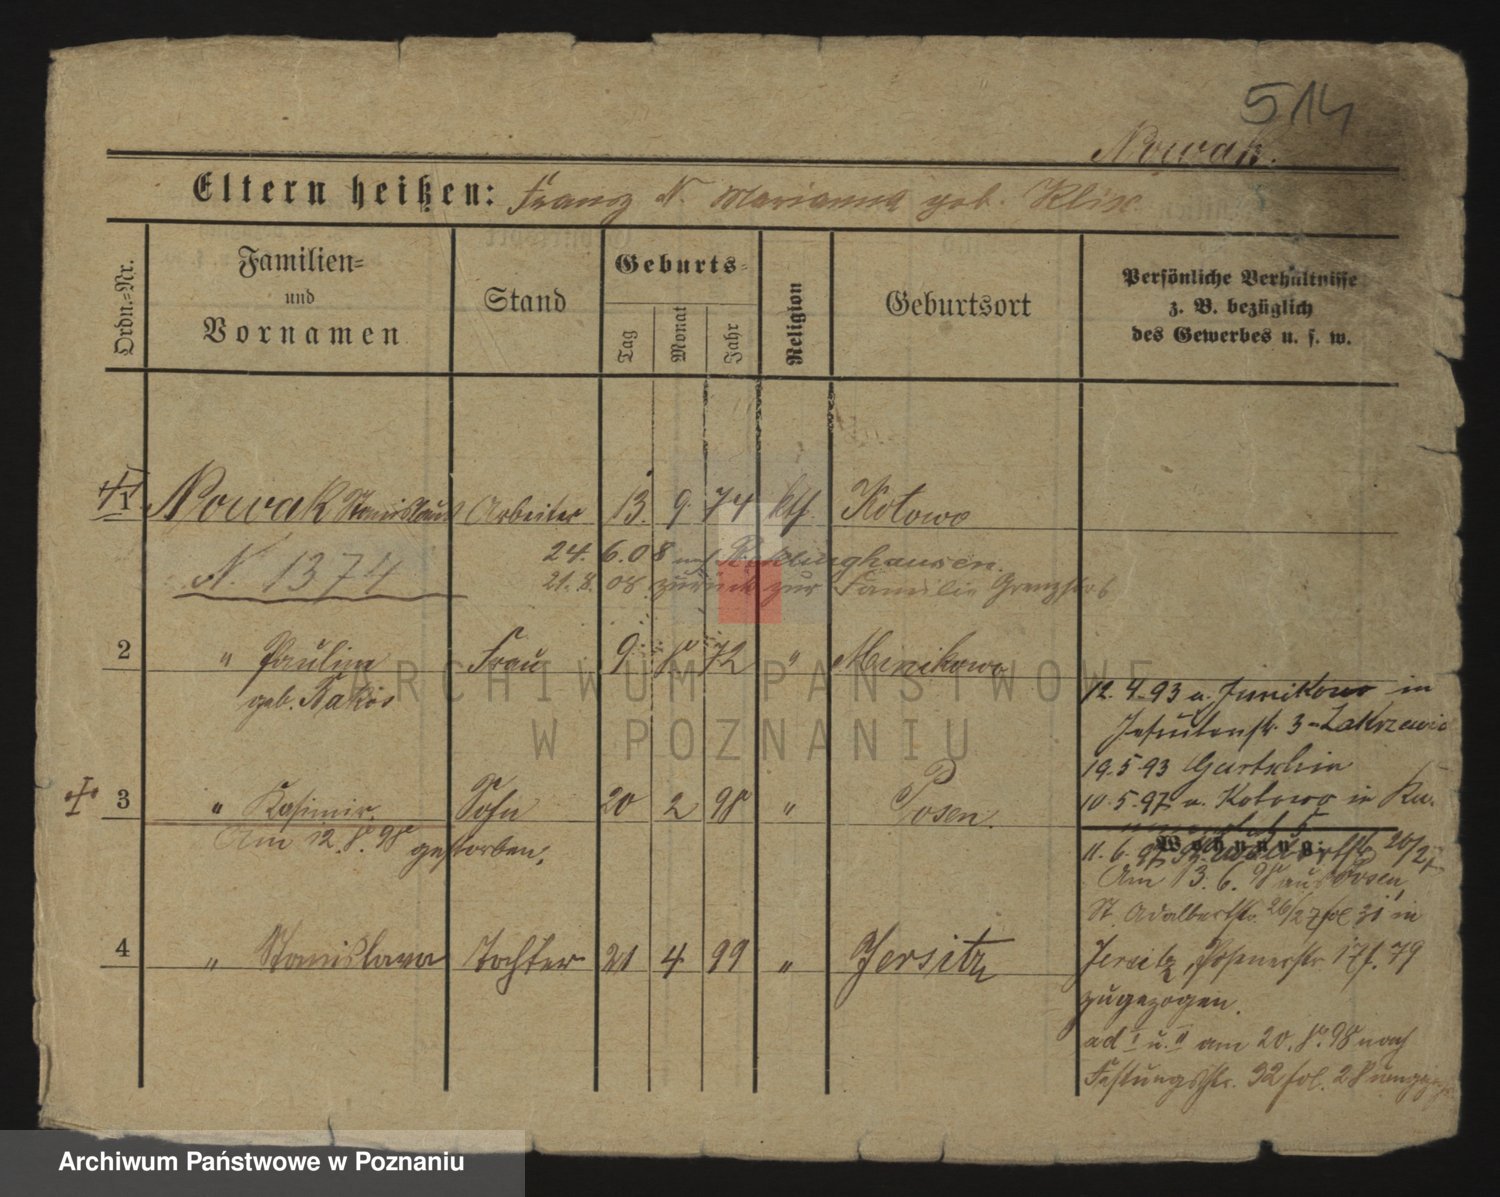 514
Nowak.
Eltern heißen: Franz N. Marianna geb. Klix
Ordn.=Nr.
Familien=
und
Vornamen
Stand
Geburts=
Tag
Monat
Jahr
Religion
Geburtsort
Persönliche Verhältnisse
z. B. bezüglich
des Gewerbes u. s. w.
1 Nowak Stanislaus Arbeiter 13. 9. 74 kth. Kotowo
N. 1374
24. 6. 08 nach Recklinghausen.
21. 8. 08. zurück zur Familie Grenzstr. 6
2 " Paulina Frau 9 8 72 "
geb. Ratois
12. 4. 93 a. Junikowo in
Jesuitenstr. 3 - Zakrzewic
19. 5. 93 Gurtschin
3 " Kasimir Sohn 20 2 98 " Posen.
10. 5. 97 a. Kotowo in
Am 12. 8. 98 gestorben.
Wohnung:
11. 6. 97 20/21
Am 13. 6. 98 aus Posen,
St. Adalbertstr. 26/27 fol 31 in
4 " Stanislawa Tochter 21 4 99 " Jersitz
Jersitz, Posenerstr 17 f. 79
zugezogen.
ad I u. II am 20. 8. 98 nach
Festungsstr. 32 fol. 28
ARCHIWUM PAŃSTWOWE
W POZNANIU
Archiwum Państwowe w Poznaniu